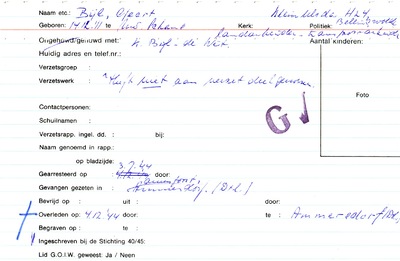 Naam etc.: Bijl, Geert
Geboren: 14.12.11 te
Kerk: Politiek:
landarbeider - transportarbeider
Gehuwd/gehuwd met: Bijl - de Wit. Aantal kinderen:
Huidig adres en telef.nr.:
Verzetsgroep :
Verzetswerk : Heeft niet aan verzet deelgenomen.
Foto
Contactpersonen:
Schuilnamen :
G
Verzetsrapp. ingel. dd. : bij:
Naam genoemd in rapp.:
op bladzijde: 3.7.44
Gearresteerd op : door:
Gevangen gezeten in :
Bevrijd op : uit : door:
Overleden op : 4.12.'44 door: te :
Begraven op : te :
Ingeschreven bij de Stichting 40/45:
Lid G.O.I.W. geweest: Ja / Neen